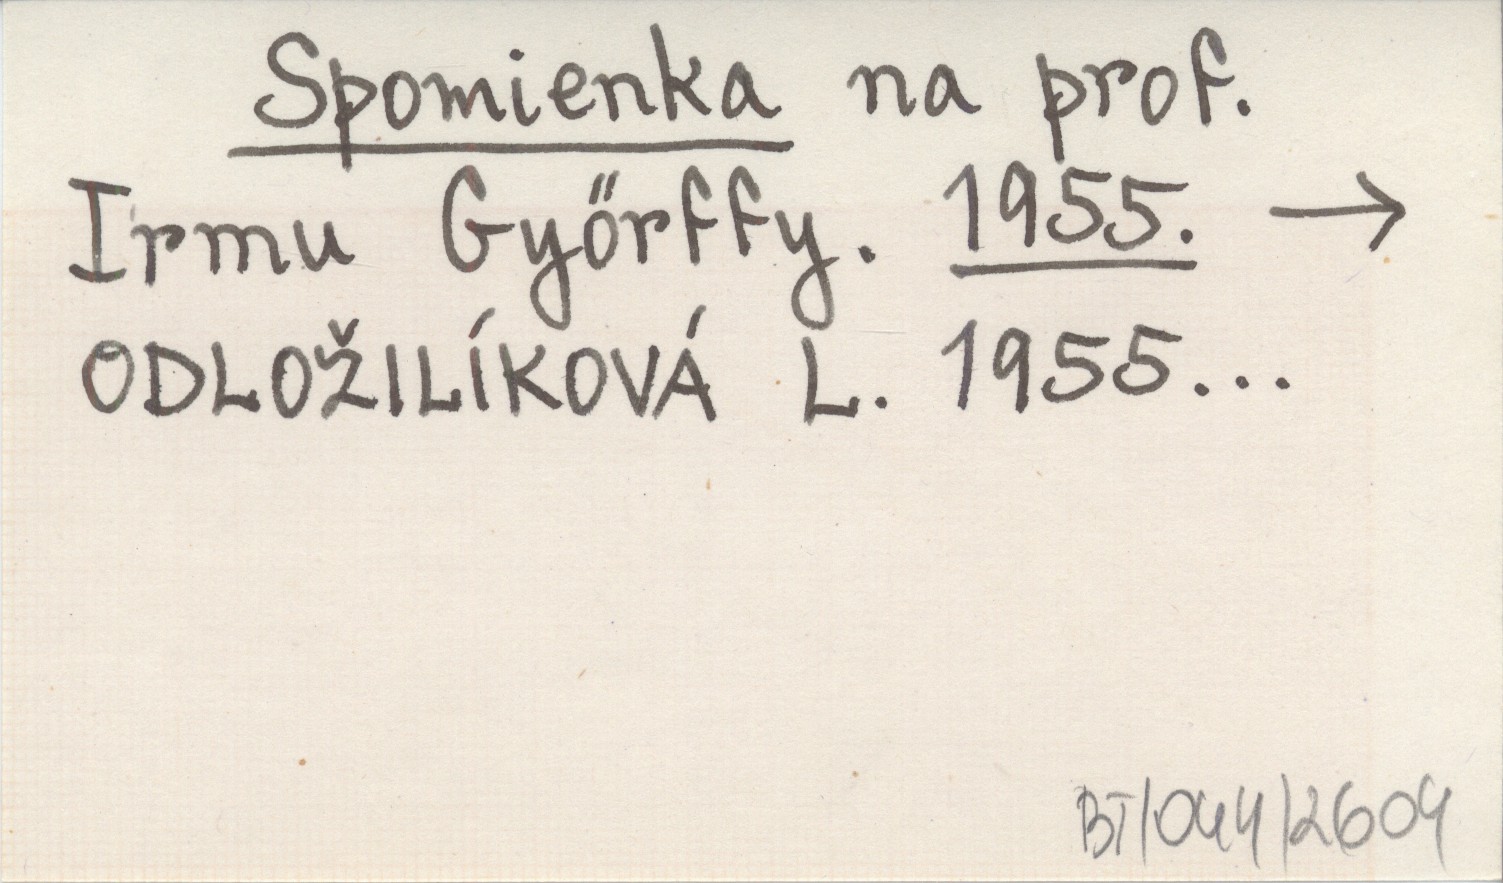 Spomienka na prof.
Irmu Győrffy. 1955. →
ODLOŽILÍKOVÁ L. 1955...
BT/044/2604